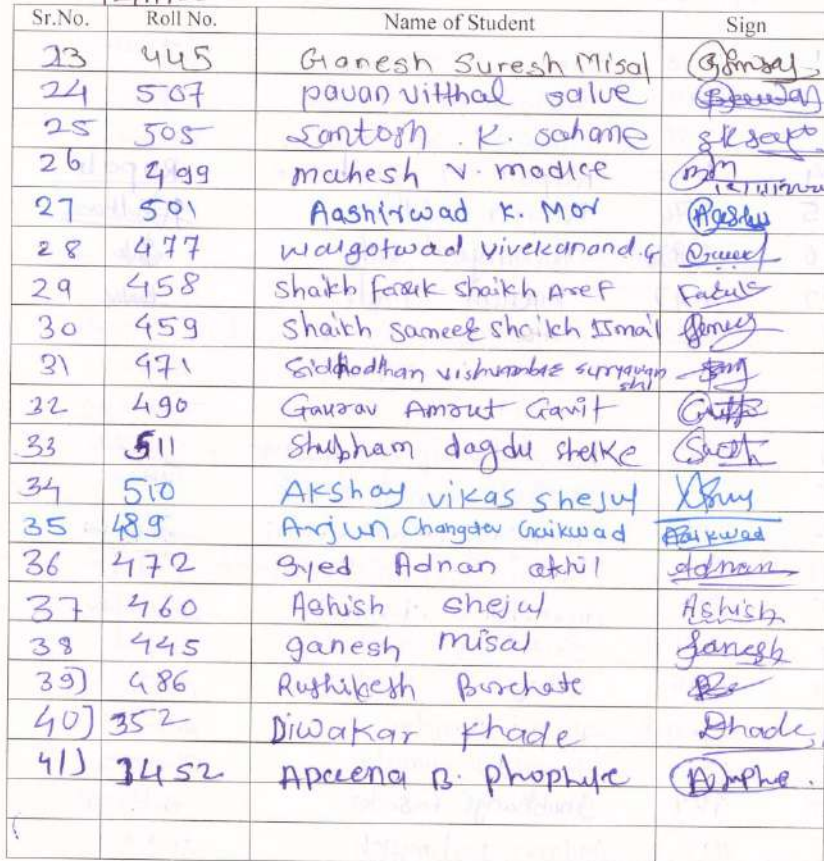 Sr.No. Roll No. Name of Student Sign
23 445 Ganesh Suresh Misal
24 507 pavan vitthal salve
25 505 Santosh . K. sahane
26 499 mahesh v. madke
27 501 Aashirwad K. Mor
28 477 walgotwad vivekanand.G
29 458 Shaikh faruk shaikh Aref Faruk
30 459 Shaikh sameer shaikh Ismail
31 471 Siddhodhan vishvambar suryawanshi
32 490 Gaurav Amrut Gavit
33 511 Shubham dagdu shelke
34 510 Akshay vikas shejul
35 489 Arjun Changdev Gaikwad Gaikwad
36 472 Syed Adnan akhil Adnan
37 460 Ashish shejul Ashish
38 445 ganesh misal Ganesh
39) 486 Rushikesh Borchate
40) 352 Diwakar Khade
41) 3452 B.